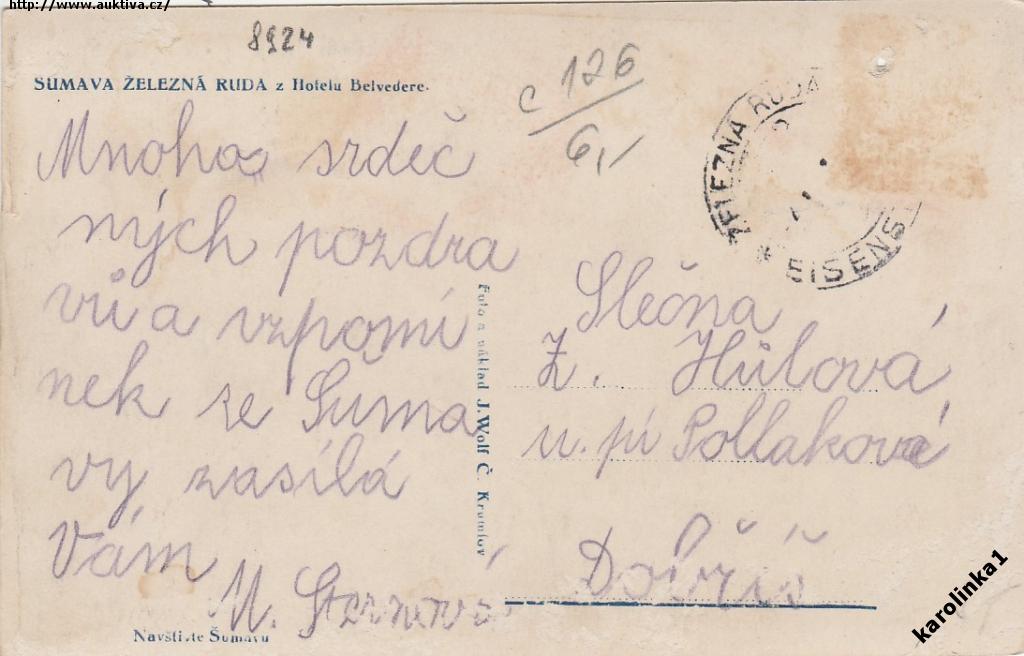 http://www.auktiva.cz/
8924
c 126
6,-
SUMAVA ŽELEZNÁ RUDA z Hotelu Belvedere.
Mnoho srdeč
ných pozdra
vů a vzpomí
nek ze Šuma
vy zasílá
Vám
M. Sternová
Navštivte Šumavu
Foto a náklad J. Wolf Č. Krumlov
ŽELEZNÁ RUDA
* EISENS
Slečna
Z. Hůlová
u. pí Pollakové
Dobříš
karolinka1